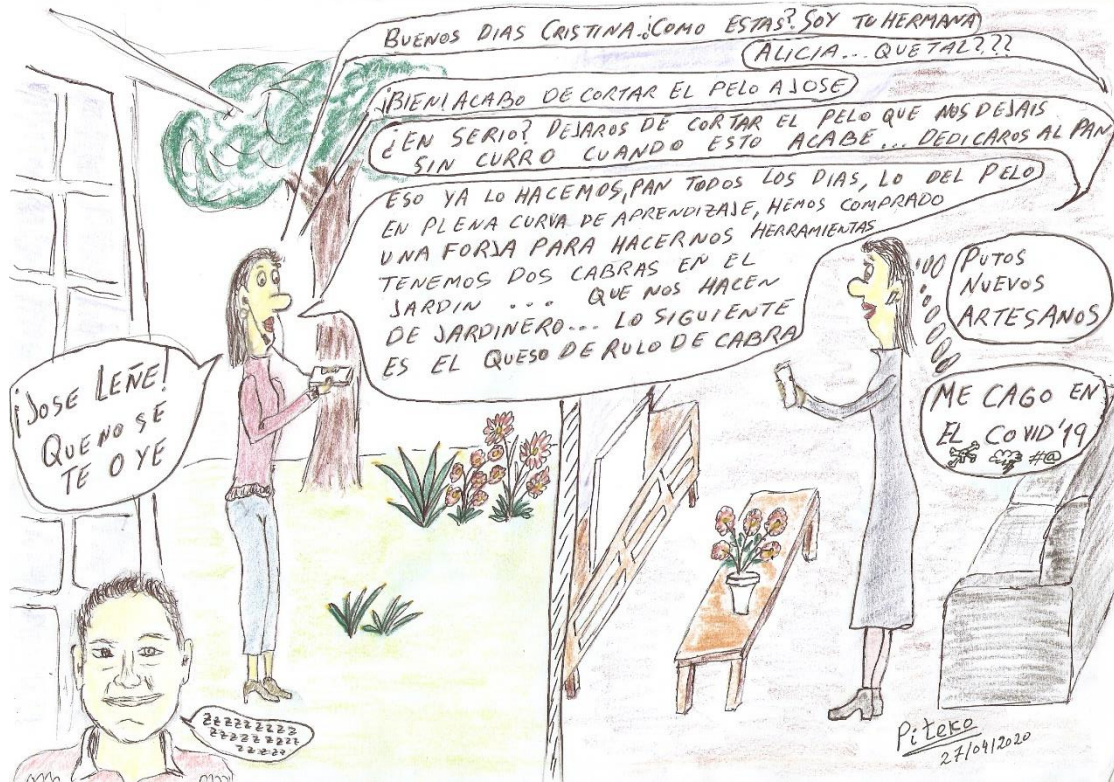 BUENOS DIAS CRISTINA. ¿COMO ESTAS? SOY TU HERMANA
ALICIA... QUE TAL???
¡BIEN! ACABO DE CORTAR EL PELO A JOSE
¿EN SERIO? DEJAROS DE CORTAR EL PELO QUE NOS DEJAIS
SIN CURRO CUANDO ESTO ACABE... DEDICAROS AL PAN
ESO YA LO HACEMOS, PAN TODOS LOS DIAS, LO DEL PELO
EN PLENA CURVA DE APRENDIZAJE, HEMOS COMPRADO
UNA FORJA PARA HACERNOS HERRAMIENTAS
TENEMOS DOS CABRAS EN EL
JARDIN ... QUE NOS HACEN
DE JARDINERO... LO SIGUIENTE
ES EL QUESO DE RULO DE CABRA
PUTOS
NUEVOS
ARTESANOS
ME CAGO EN
EL COVID'19
#@
¡JOSE LEÑE!
QUE NO SE
TE OYE
ZZZZZZZZZ
ZZZZZZZZZZ
ZZZZZZ
Piteko
27/04/2020